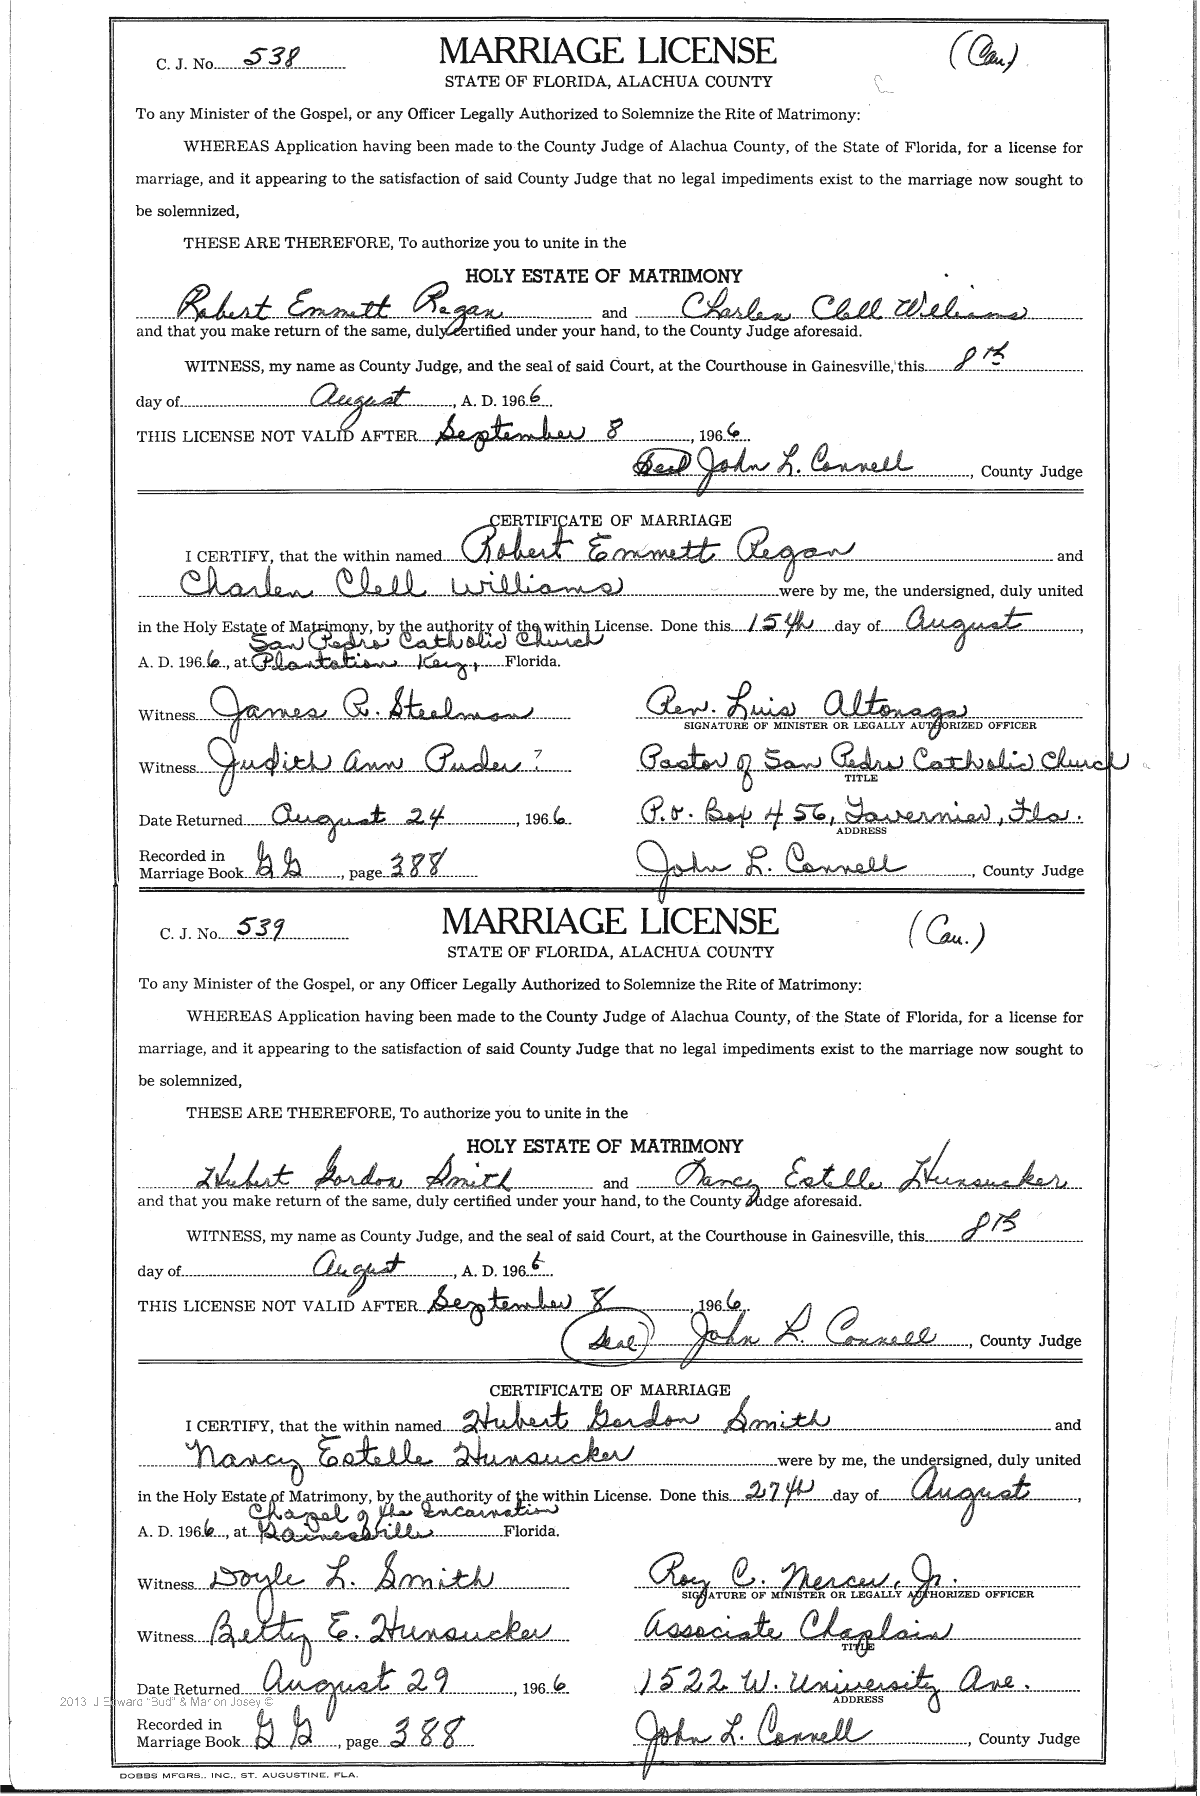 C. J. No. 538 MARRIAGE LICENSE (Cau)
STATE OF FLORIDA, ALACHUA COUNTY
To any Minister of the Gospel, or any Officer Legally Authorized to Solemnize the Rite of Matrimony:
WHEREAS Application having been made to the County Judge of Alachua County, of the State of Florida, for a license for
marriage, and it appearing to the satisfaction of said County Judge that no legal impediments exist to the marriage now sought to
be solemnized,
THESE ARE THEREFORE, To authorize you to unite in the
HOLY ESTATE OF MATRIMONY
Robert Emmett Regan and Charlen Clell Williams
and that you make return of the same, duly certified under your hand, to the County Judge aforesaid.
WITNESS, my name as County Judge, and the seal of said Court, at the Courthouse in Gainesville, this 8th
day of August, A. D. 1966
THIS LICENSE NOT VALID AFTER September 8, 1966
Seal John L. Connell, County Judge
CERTIFICATE OF MARRIAGE
I CERTIFY, that the within named Robert Emmett Regan and
Charlen Clell Williams were by me, the undersigned, duly united
in the Holy Estate of Matrimony, by the authority of the within License. Done this 15th day of August,
San Pedro Catholic Church
A. D. 1966, at Plantation Key, Florida.
Witness James R. Steelman Rev. Luis Altonaga
SIGNATURE OF MINISTER OR LEGALLY AUTHORIZED OFFICER
Witness Judith Ann Puder? Pastor of San Pedro Catholic Church
TITLE
Date Returned August 24, 1966 P.O. Box 456, Tavernier, Fla.
ADDRESS
Recorded in
Marriage Book GG, page 388 John L. Connell, County Judge
C. J. No. 539 MARRIAGE LICENSE (Cau.)
STATE OF FLORIDA, ALACHUA COUNTY
To any Minister of the Gospel, or any Officer Legally Authorized to Solemnize the Rite of Matrimony:
WHEREAS Application having been made to the County Judge of Alachua County, of the State of Florida, for a license for
marriage, and it appearing to the satisfaction of said County Judge that no legal impediments exist to the marriage now sought to
be solemnized,
THESE ARE THEREFORE, To authorize you to unite in the
HOLY ESTATE OF MATRIMONY
Hubert Gordon Smith and Nancy Estelle Hunsucker
and that you make return of the same, duly certified under your hand, to the County Judge aforesaid.
WITNESS, my name as County Judge, and the seal of said Court, at the Courthouse in Gainesville, this 8th
day of August, A. D. 1966
THIS LICENSE NOT VALID AFTER September 8, 1966
(Seal) John L. Connell, County Judge
CERTIFICATE OF MARRIAGE
I CERTIFY, that the within named Hubert Gordon Smith and
Nancy Estelle Hunsucker were by me, the undersigned, duly united
in the Holy Estate of Matrimony, by the authority of the within License. Done this 27th day of August,
Chapel of the Encarnation
A. D. 1966, at Gainesville Florida.
Witness Doyle L. Smith Roy C. Mercer, Jr.
SIGNATURE OF MINISTER OR LEGALLY AUTHORIZED OFFICER
Witness Betty E. Hunsucker Associate Chaplain
TITLE
Date Returned August 29, 1966 1522 W. University Ave.
ADDRESS
2013 J Edward "Bud" & Marion Josey ©
Recorded in
Marriage Book GG, page 388 John L. Connell, County Judge
DOBBS MFGRS., INC., ST. AUGUSTINE, FLA.